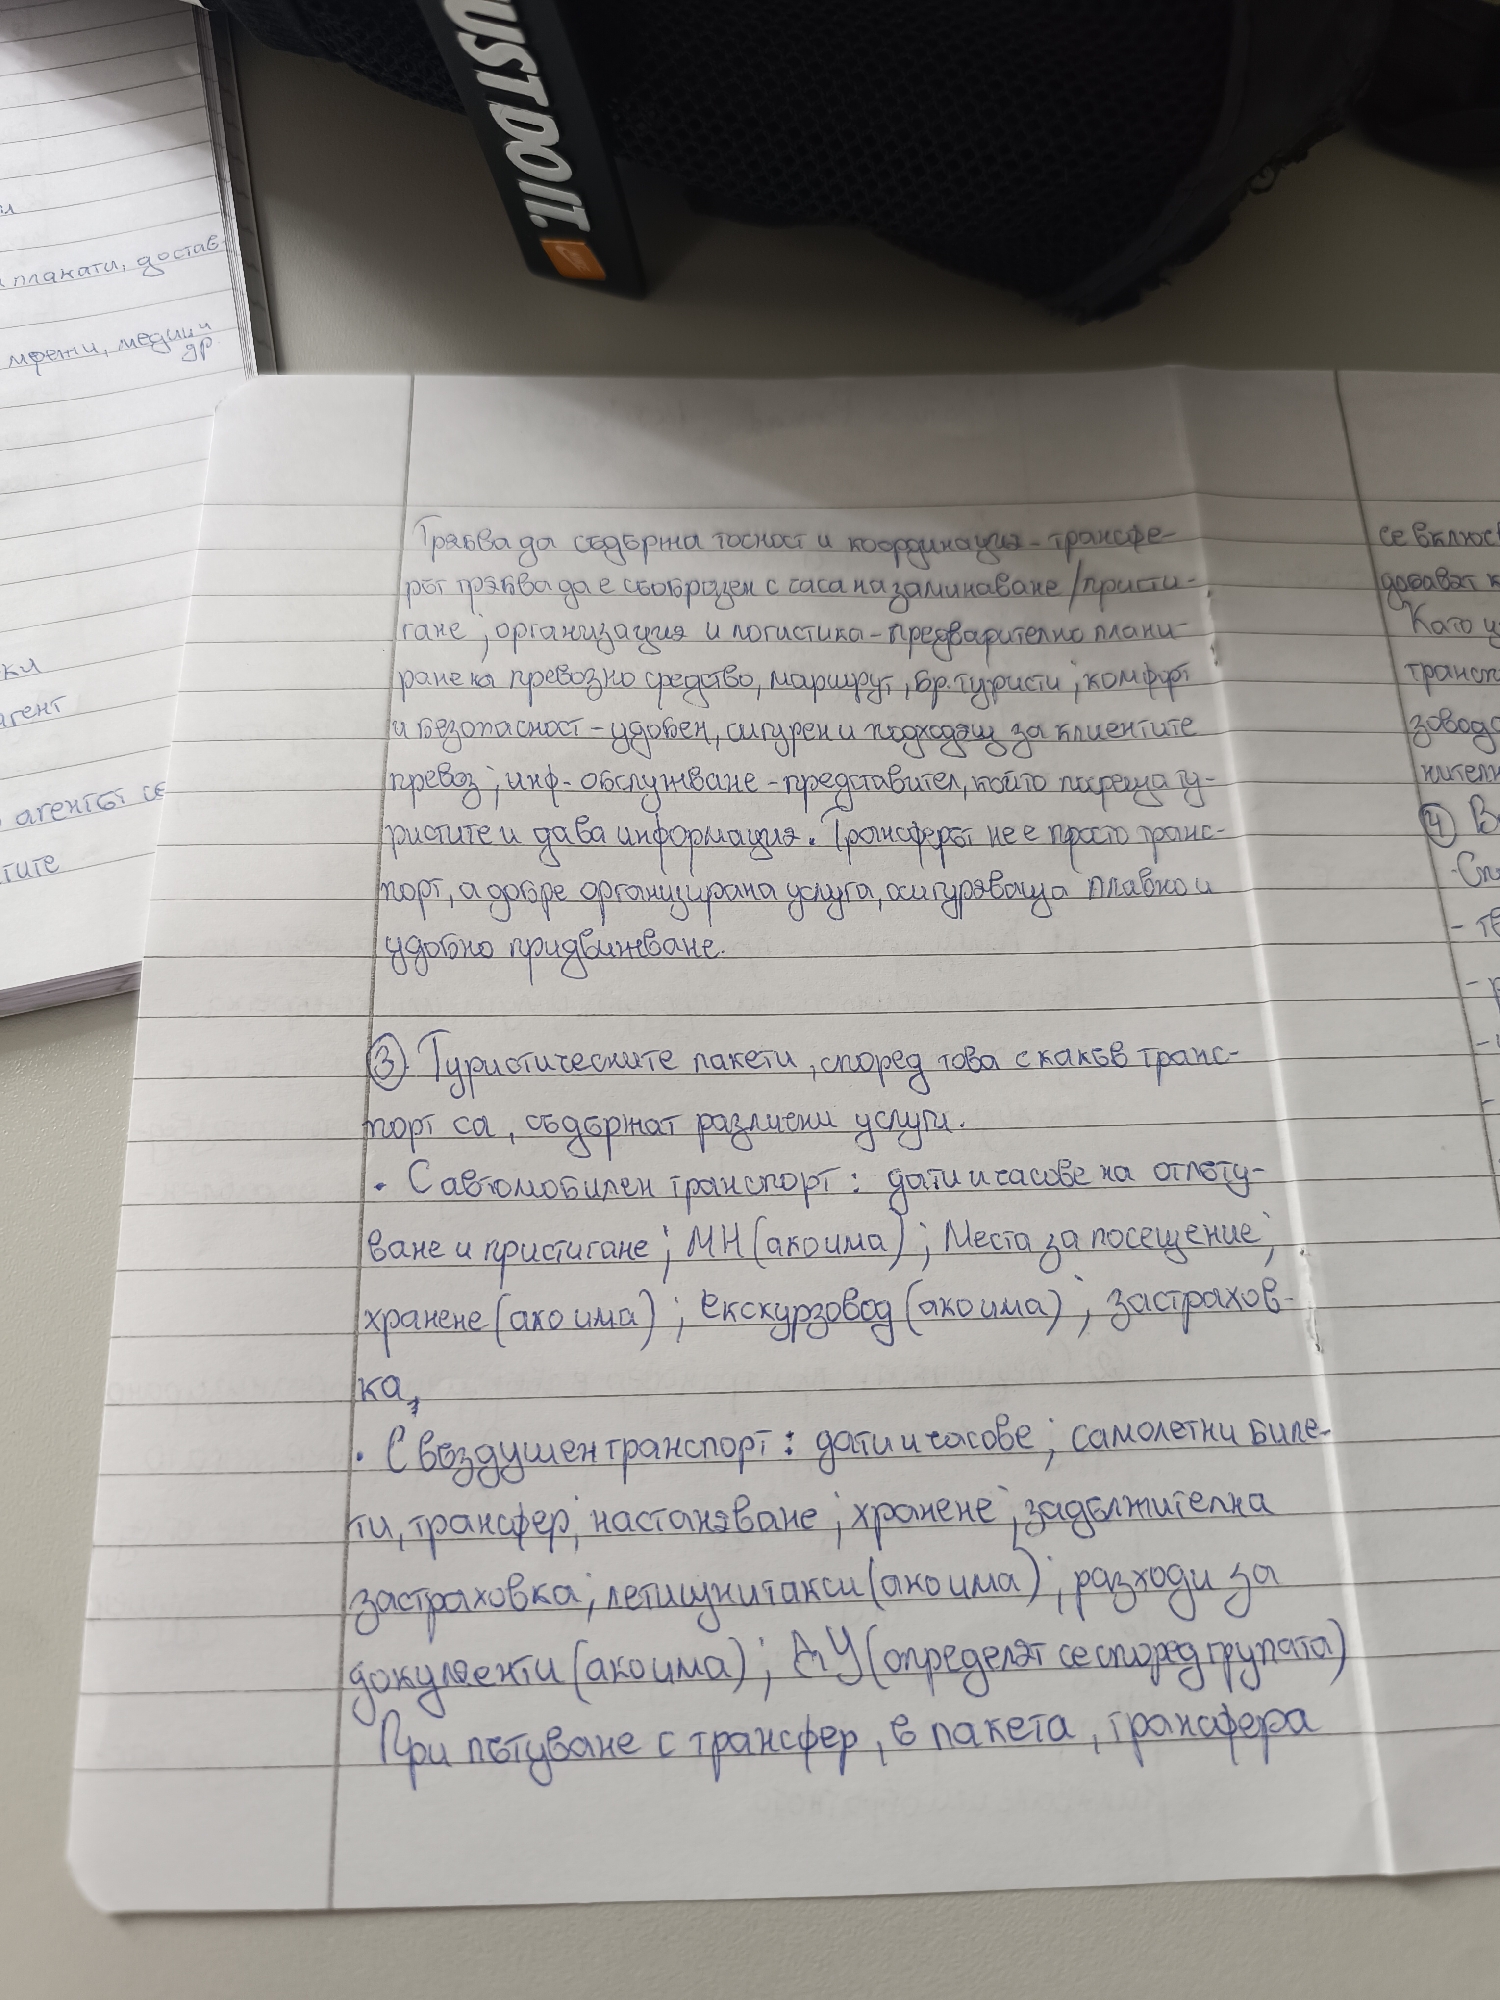 UST DO IT.
плакати, достав-
медии и
др.
ки
агент
агентът се
тите
Трябва да съдържа точност и координация - трансфе-
рът трябва да е съобразен с часа на заминаване / присти-
гане ; организация и логистика - предварително плани-
ране на превозно средство, маршрут, бр. туристи ; комфорт
и безопасност - удобен, сигурен и подходящ за клиентите
превоз ; инф- обслужване - представител, който посреща ту-
ристите и дава информация. Трансферът не е просто транс-
порт, а добре организирана услуга, осигуряваща плавно и
удобно придвижване.
③ Туристическите пакети, според това с какъв транс-
порт са, съдържат различни услуги.
• С автомобилен транспорт : дати и часове на отпъту-
ване и пристигане ; МН (ако има) ; Места за посещение ;
хранене (ако има) ; Екскурзовод (ако има) ; застрахов-
ка,
• С въздушен транспорт : дати и часове ; самолетни биле-
ти, трансфер ; настаняване ; хранене ; задължителна
застраховка ; летищни такси (ако има) ; разходи за
документи (ако има) ; ДУ (определят се според групата)
При пътуване с трансфер, в пакета, трансфера
се включ
добават к
Като
трансп
зовода
нителн
④ В